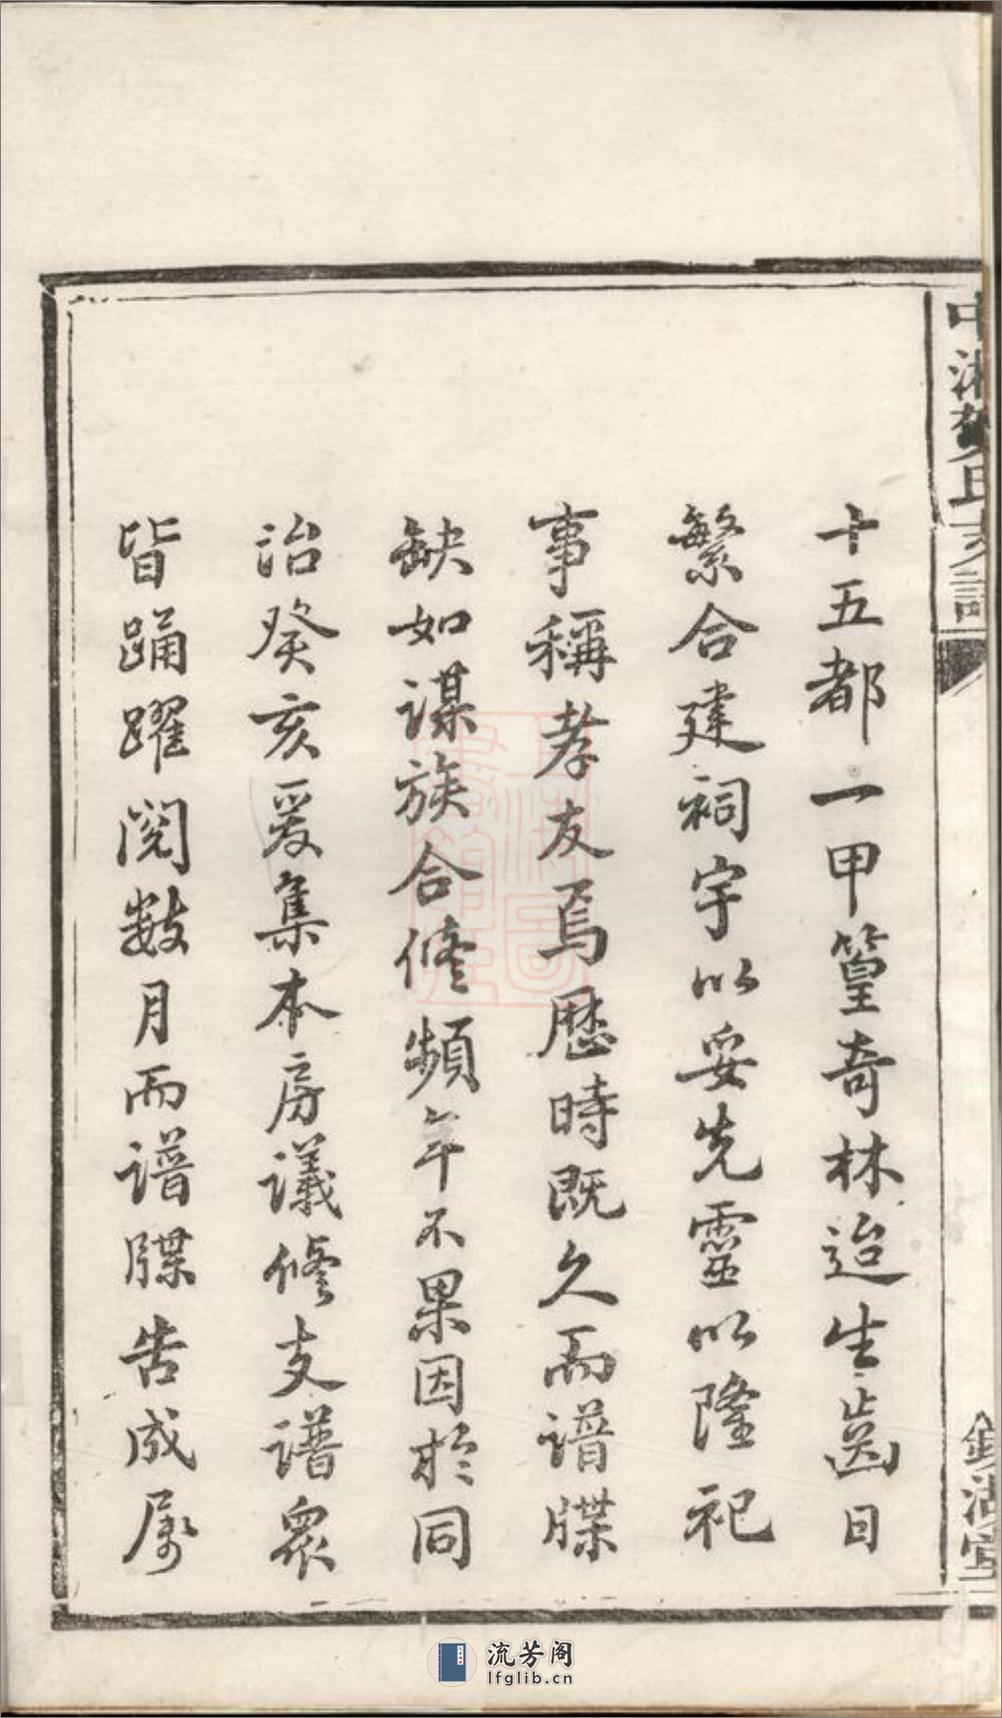 中湘賀氏支譜
鑑湖堂
十五都一甲篁奇林迨生齒日
繁合建祠宇以妥先靈以隆祀
事稱孝友焉歷時既久而譜牒
缺如謀族合修頻年不果因於同
治癸亥爰集本房議修支譜衆
皆踊躍閱數月而譜牒告成屬
上海圖書館藏
流芳阁
lfglib.cn